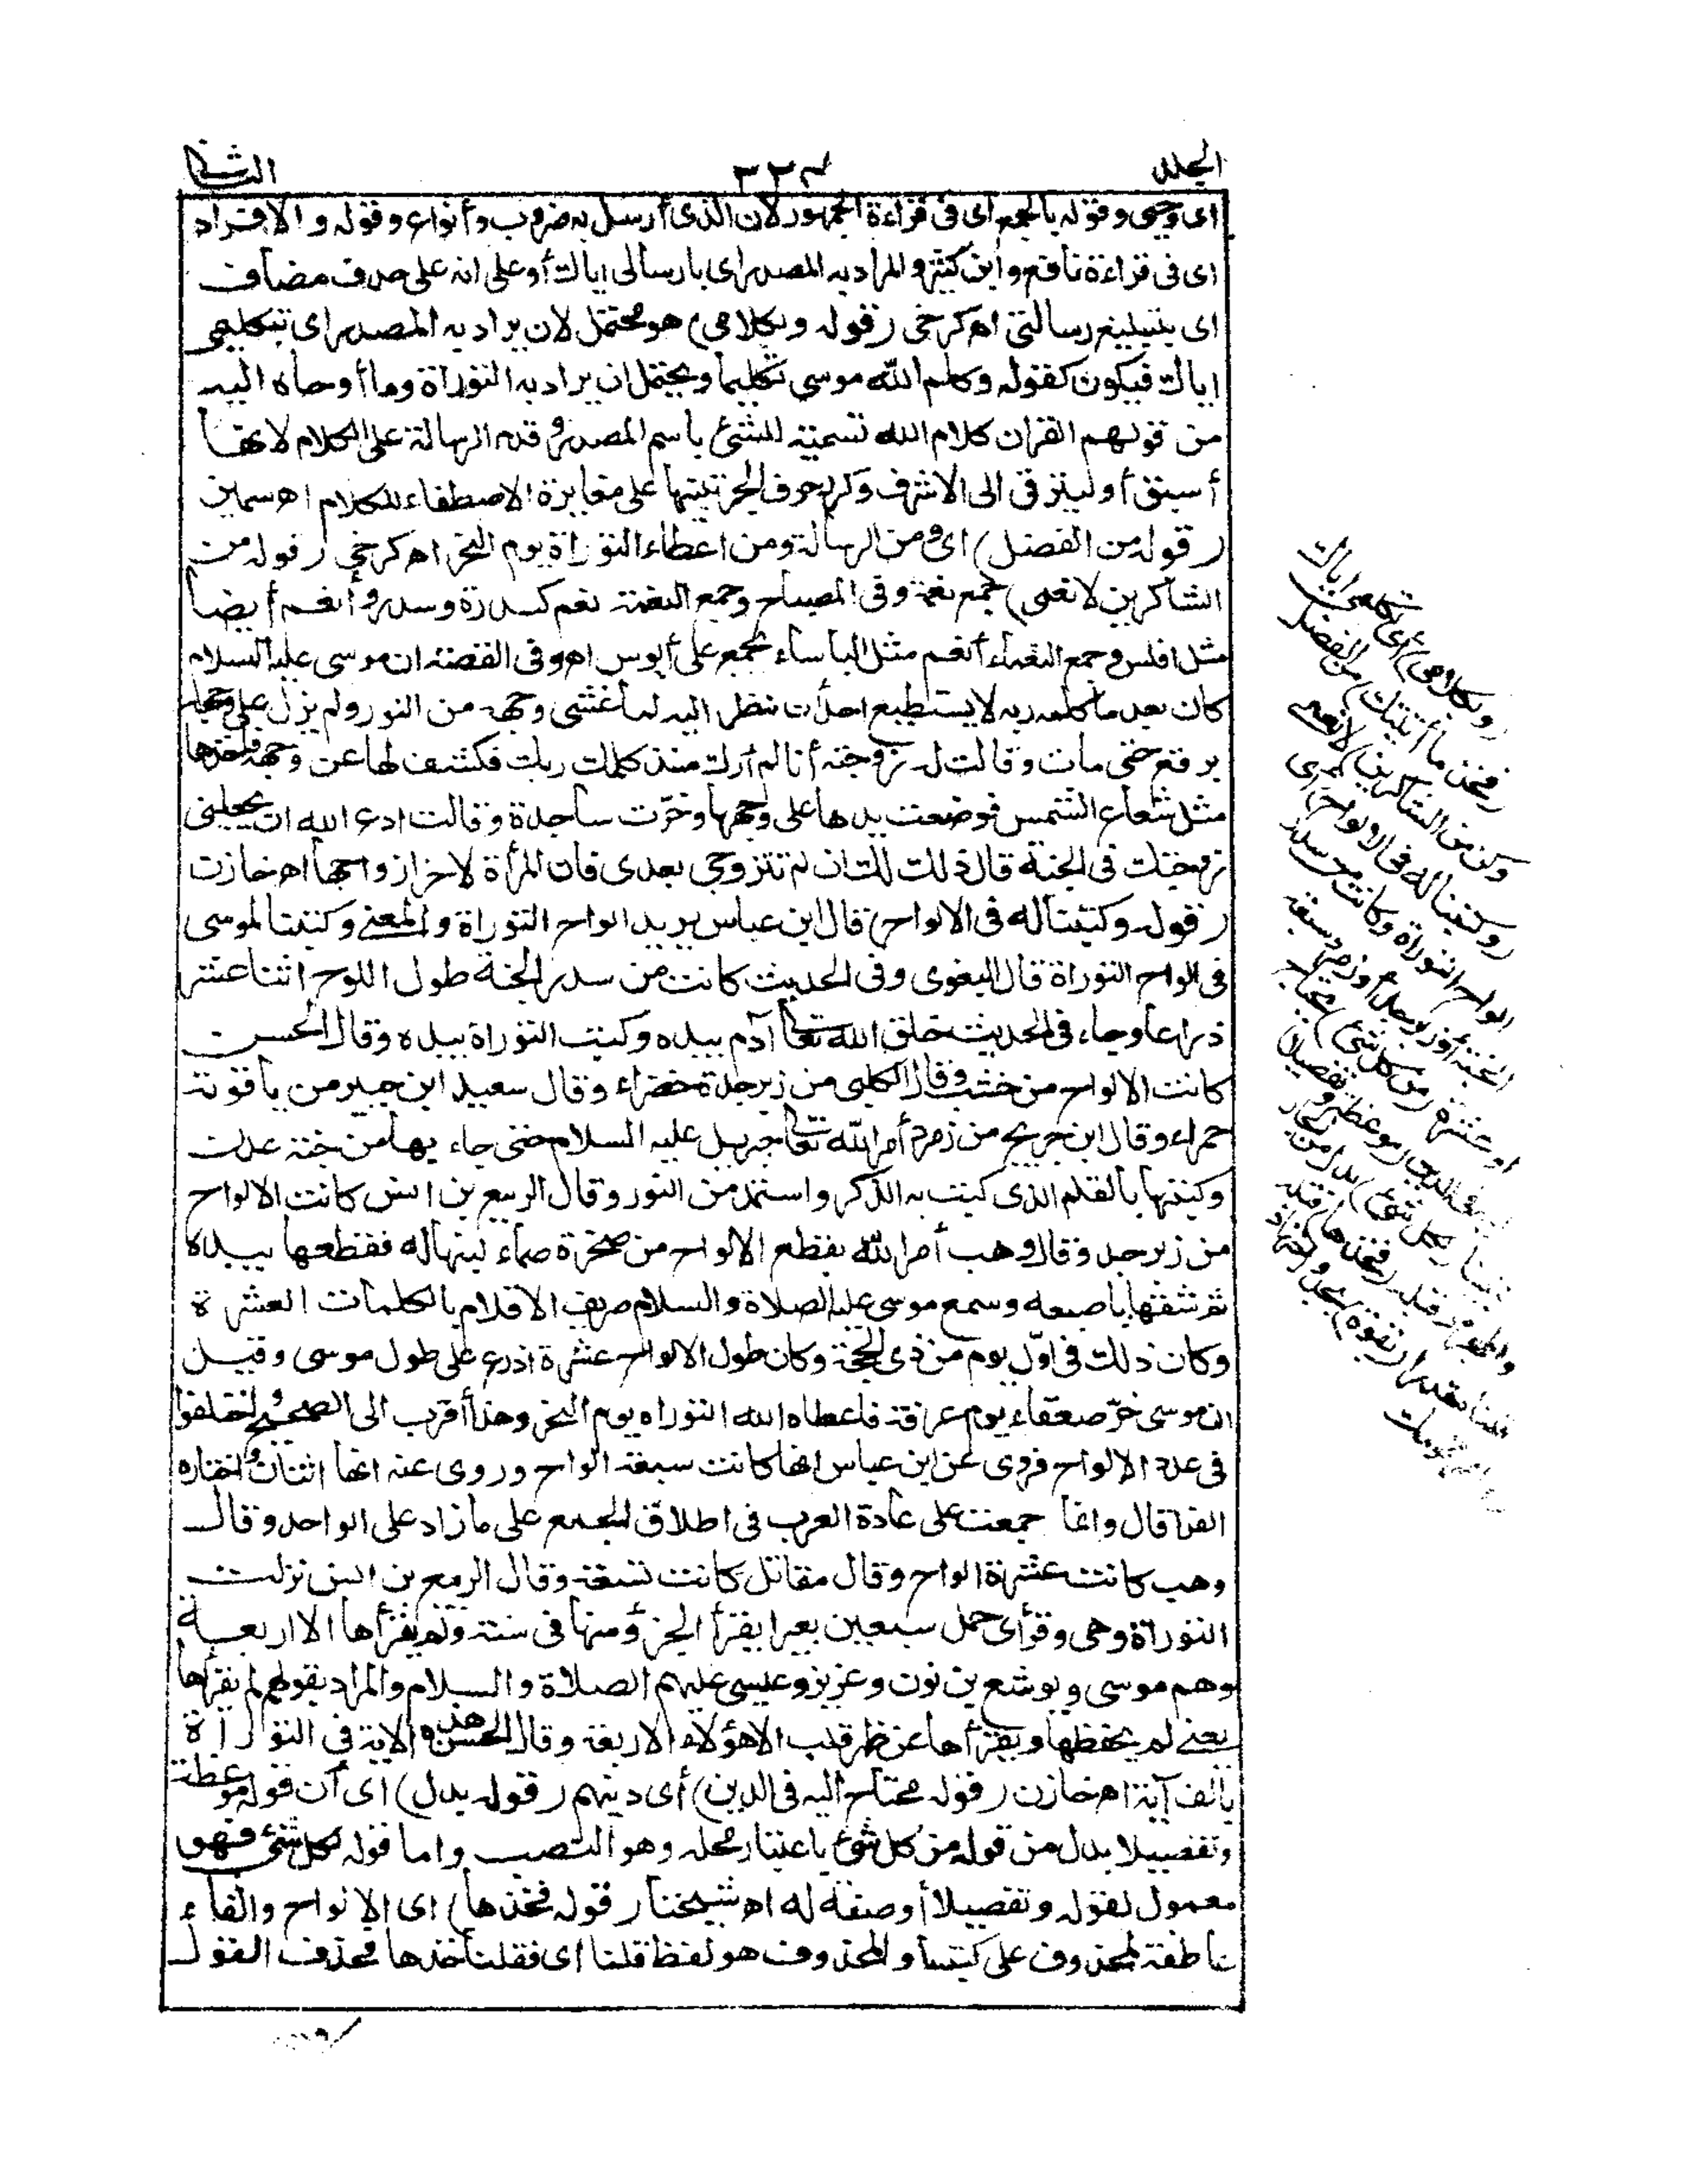 المجلد
٣٢٣
الثاني
اى وحيى وقوله بالجمع اى فى قراءة الجمهور لان الذى أرسل به ضروب وأنواع وقوله والافراد
اى فى قراءة نافع وابن كثير والمراد به المصدر اى بارسالى اياك أو على انه على حذف مضاف
اى بتبليغ رسالتى اه كرخى (قوله وبكلامى) هو محتمل لان يراد به المصدر اى بتكليمى
اياك فيكون كقوله وكلم الله موسى تكليما ويحتمل ان يراد به التوراة وما أوحاه اليه
من قولهم القران كلام الله تسمية للشئ باسم المصدر وقدم الرسالة على الكلام لانها
أسبق أو ليترقى الى الاشرف وكرر حرف الجر تنبيها على مغايرة الاصطفاء للكلام اه سمين
(قوله من الفضل) اى ومن الرسالة ومن اعطاء التوراة يوم النحر اه كرخى (قوله من
الشاكرين لانعمى) جمع نعمة وفى المصباح وجمع النعمة نعم كسدرة وسدر وأنعم أيضا
مثل افلس وجمع النعماء أنعم مثل البأساء تجمع على أبوس اه وفى القصة ان موسى عليه السلام
كان بعد ما كلمه ربه لا يستطيع احد أن ينظر اليه لما غشى وجهه من النور ولم يزل على وجهه
برقع حتى مات وقالت له زوجته أنا لم أرك منذ كلمك ربك فكشف لها عن وجهه فاخذها
مثل شعاع الشمس فوضعت يدها على وجهها وخرّت ساجدة وقالت ادع الله ان يجعلنى
زوجتك فى الجنة قال ذلك لك ان لم تتزوجى بعدى فان المرأة لاخر ازواجها اه خازن
(قوله وكتبنا له فى الالواح) قال ابن عباس يريد الواح التوراة والمعنى وكتبنا لموسى
فى الواح التوراة قال البغوى وفى الحديث كانت من سدر الجنة طول اللوح اثنا عشر
ذراعا وجاء فى الحديث خلق الله تعالى آدم بيده وكتب التوراة بيده وقال الحسن
كانت الالواح من خشب وقال الكلبى من زبرجدة خضراء وقال سعيد ابن جبير من ياقوتة
حمراء وقال ابن جريج من زمرد أمر الله تعالى جبريل عليه السلام حتى جاء بها من جنة عدن
وكتبها بالقلم الذى كتب به الذكر واستمد من النور وقال الربيع بن انس كانت الالواح
من زبرجد وقال وهب أمر الله بقطع الالواح من صخرة صماء لينها له فقطعها بيده
ثم شقها باصبعه وسمع موسى عليه الصلاة والسلام صريف الاقلام بالكلمات العشرة
وكان ذلك فى اوّل يوم من ذى الحجة وكان طول الالواح عشرة اذرع على طول موسى وقيل
ان موسى خرّ صعقا يوم عرفة فاعطاه الله التوراه يوم النحر وهذا أقرب الى الصحيح واختلفوا
فى عدد الالواح فروى عن ابن عباس انها كانت سبعة الواح وروى عنه انها اثنان واختاره
الفرا قال وانما جمعت على عادة العرب فى اطلاق الجمع على ما زاد على الواحد وقال
وهب كانت عشرة الواح وقال مقاتل كانت تسعة وقال الربيع بن انس نزلت
التوراة وهى وقرأى حمل سبعين بعيرا يقرأ الجزؤ منها فى سنة ولم يقرأها الا اربعة
وهم موسى ويوشع بن نون وعزيز وعيسى عليهم الصلاة والسلام والمراد بقولهم لم يقرأها
يعنى لم يحفظها ويقرأها عن ظهر قلب الا هؤلاء الاربعة وقال الحسن هذه الاية فى التوراة
بالف آية اه خازن (قوله محتاج اليه فى الدين) أى دينهم (قوله بدل) اى أن قوله موعظة
وتفصيلا بدل من قوله من كل شئ باعتبار محله وهو النصب واما قوله لكل شئ فهو
معمول لقوله وتفصيلا أو صفة له اه شيخنا (قوله فخذها) اى الالواح والفاء
عاطفة لمحذوف على كتبنا والمحذوف هو لفظ قلنا اى فقلنا خذها فحذف القول
(وبكلامى) أى تكليمى اياك
(فخذ ما أتيتك) من الفضل
(وكن من الشاكرين) لانعمى
(وكتبنا له فى الالواح) اى
الواح التوراة وكانت من سدر
الجنة أو زبرجد أو زمرد سبعة
او عشرة (من كل شئ) محتاج
اليه فى الدين (موعظة وتفصيلا)
لكل شئ) بدل من الجار
والمجرور قبله (فخذها) قبله
قلنا مقدرا (بقوة) بجد واجتهاد